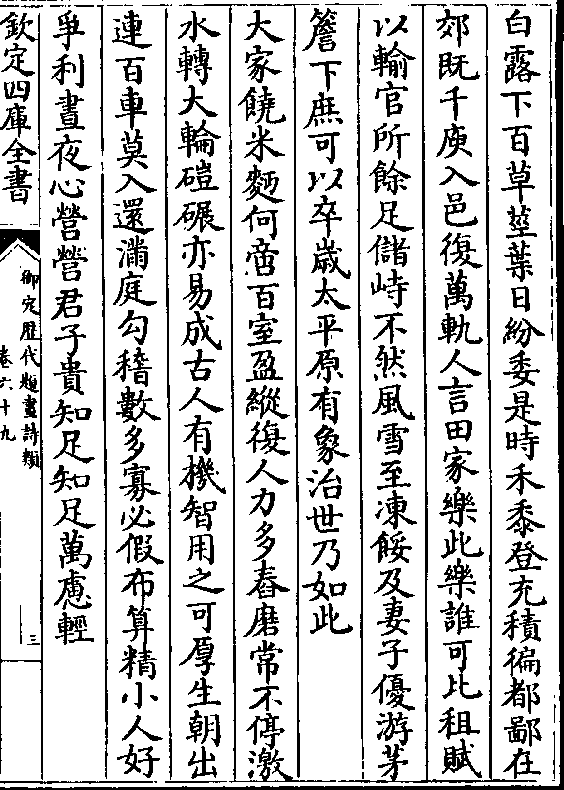 白露下百草莖葉日紛委是時禾黍登充積徧都鄙在
郊既千庾入邑復萬軌人言田家樂此樂誰可比租賦
以輸官所餘足儲峙不然風雪至凍餒及妻子優游茅
簷下庶可以卒歲太平原有象治世乃如此
大家饒米麪何啻百室盈縱復人力多舂磨常不停激
水轉大輪磑碾亦易成古人有機智用之可厚生朝出
連百車莫入還滿庭勾稽數多寡必假布算精小人好
爭利晝夜心營營君子貴知足知足萬慮輕
欽定四庫全書
御定歷代題畫詩類
卷六十九
三